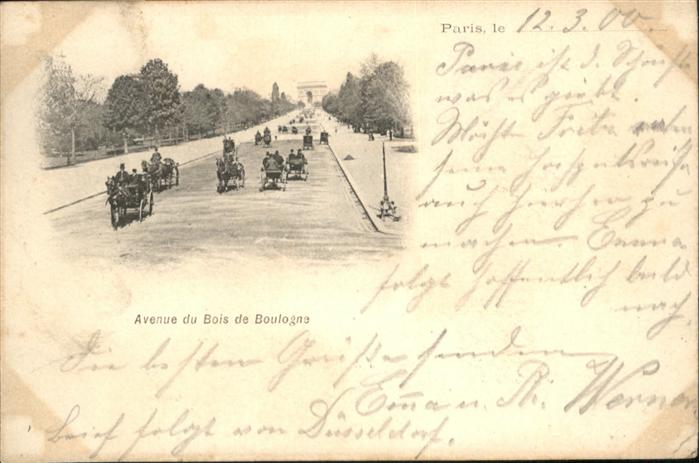 Paris, le 12.3.00.
Paris ist d. Schönste
was es giebt.
Möchte Fritz
seine Hochzeitsreise
auch hierher zu
machen. Emma
folgt hoffentlich bald
nach
Avenue du Bois de Boulogne
Die besten Grüße senden
Emma u. Th. Werner
Brief folgt von Düsseldorf.